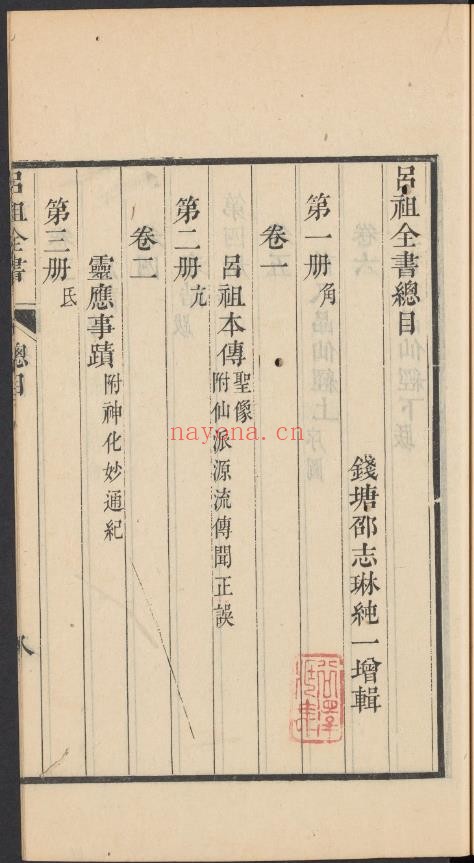 呂祖全書總目
錢塘邵志琳純一增輯
第一册角
卷一
呂祖本傳聖像
附仙派源流傳聞正誤
第二册亢
卷二
靈應事蹟附神化妙通紀
第三册氐
呂祖全書
總目
nayona.cn